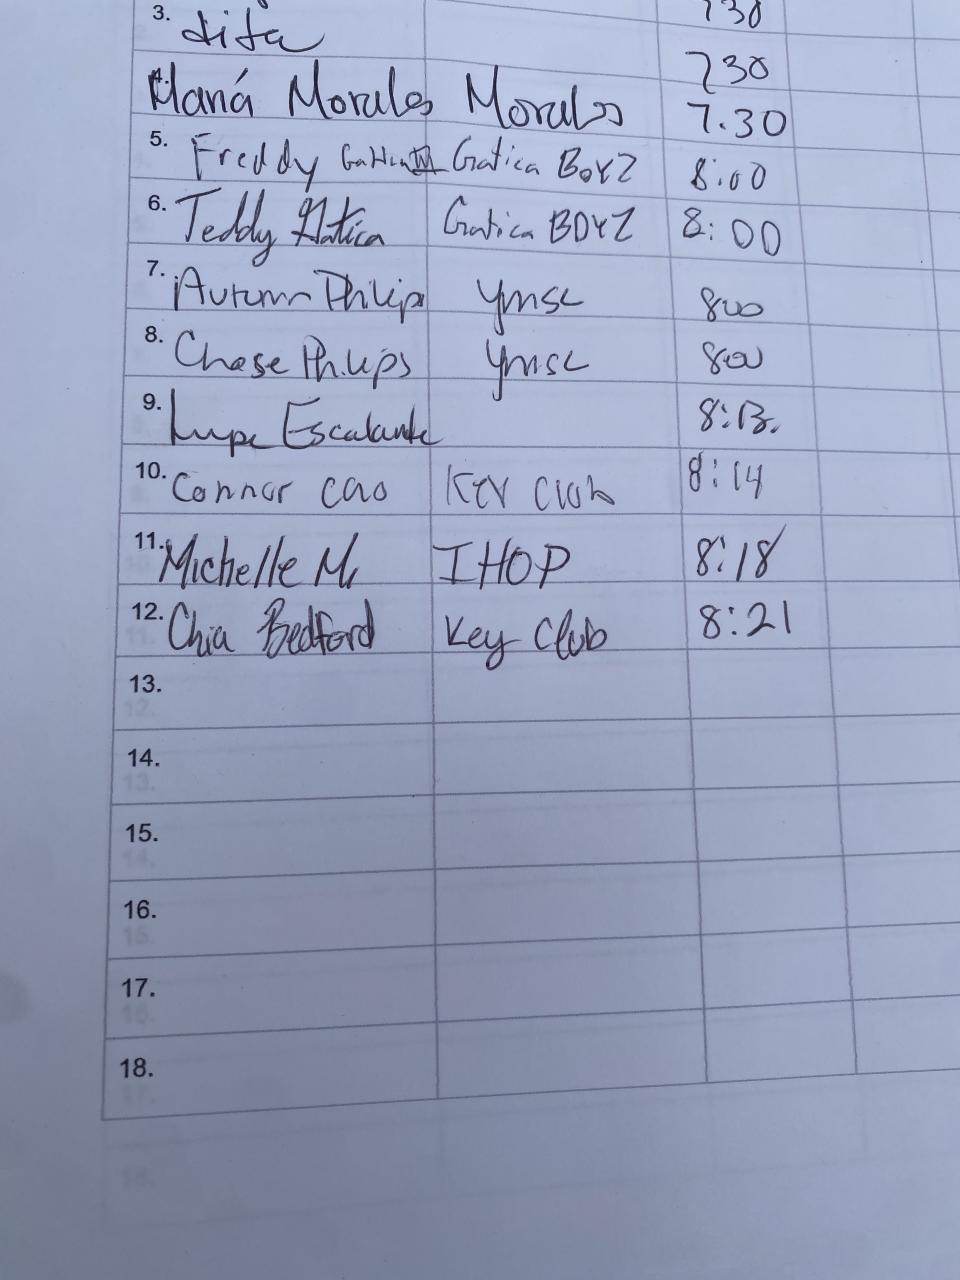 730
3. Lita 730
4. Maná Morales Morales 7.30
5. Freddy Gatica Gatica BoYZ 8:00
6. Teddy Gatica Gatica BOYZ 8:00
7. Autumn Philips ymsc 800
8. Chase Philips ymsc 800
9. Lupe Escalante 8:13.
10. Connor Cao Key Club 8:14
11. Michelle M. IHOP 8:18
12. Chia Bedford Key Club 8:21
13.
14.
15.
16.
17.
18.